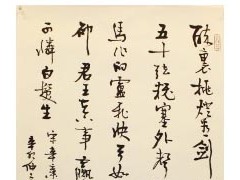 醉裏挑燈看剑
五十弦翻塞外聲
馬作的盧飛快弓如
却君王天下事贏
可憐白髮生 宋辛棄
辛卯